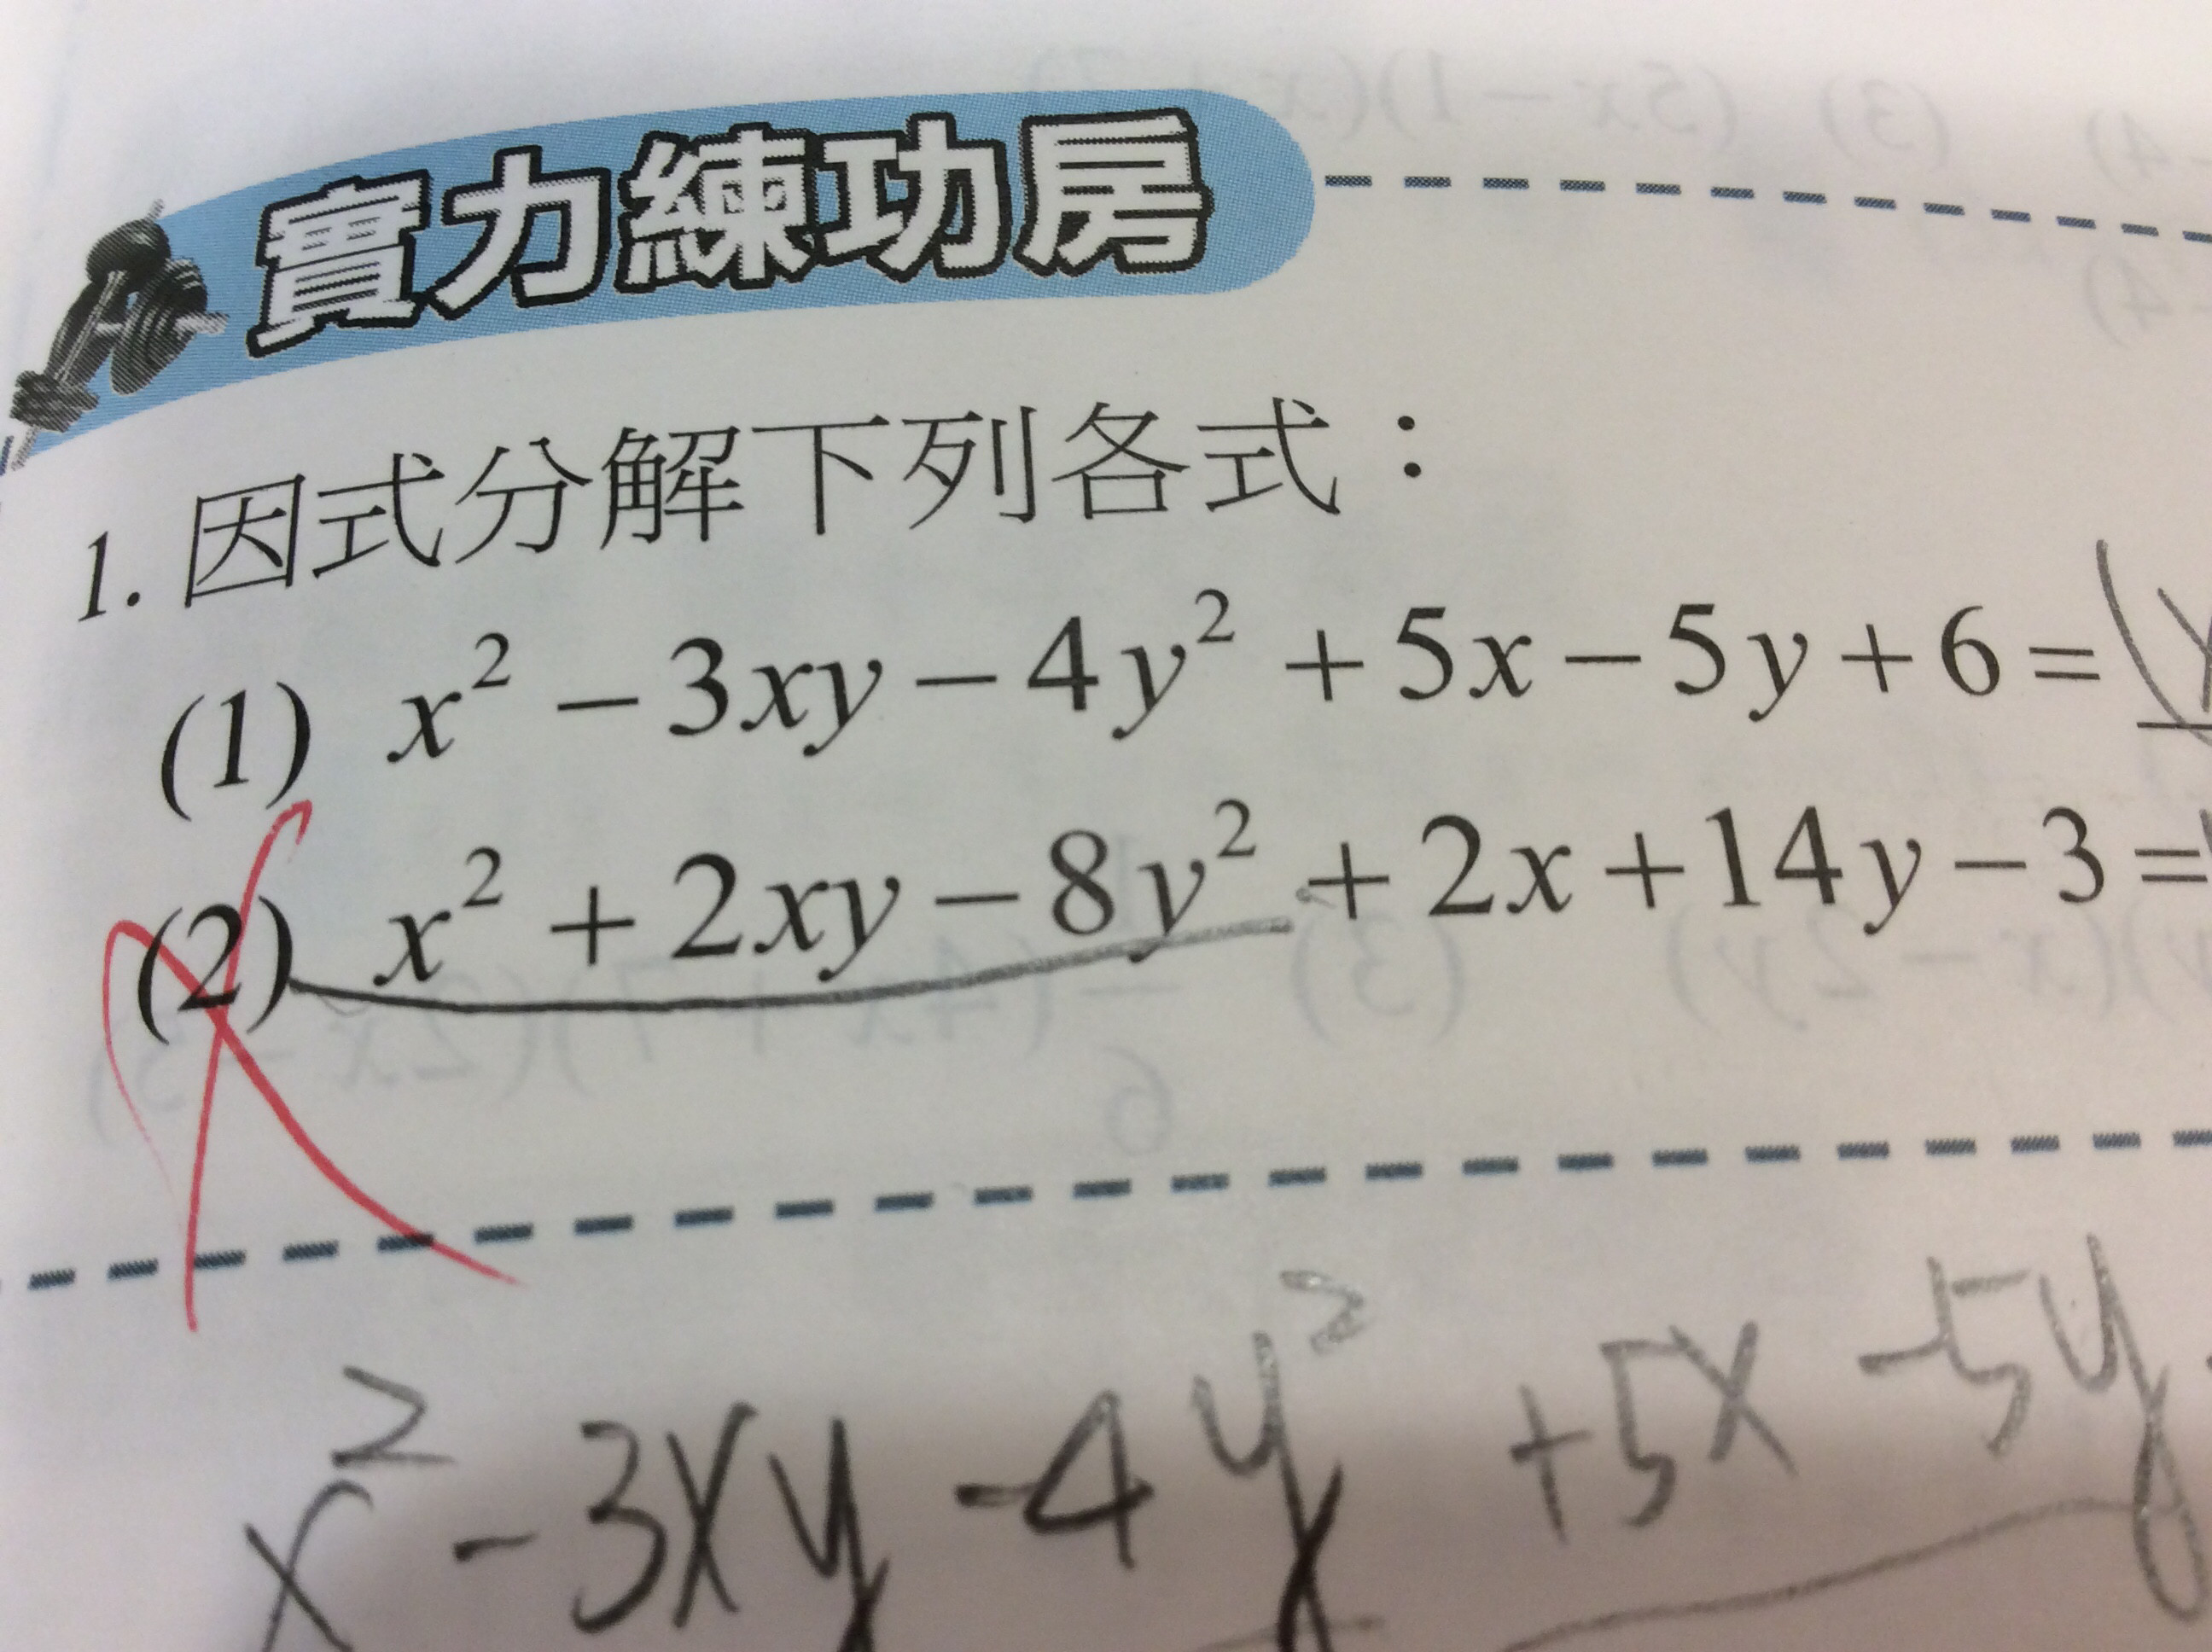 實力練功房
1. 因式分解下列各式：
(1) x² − 3xy − 4y² + 5x − 5y + 6 = (x
(2) x² + 2xy − 8y² + 2x + 14y − 3 =
x² - 3xy - 4y² + 5x - 5y